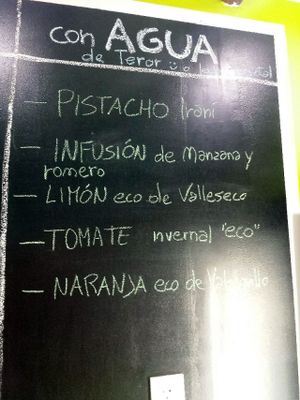 con AGUA
de Teror
- PISTACHO Iraní
- INFUSIÓN de Manzana y
romero
- LIMÓN eco de Valleseco
- TOMATE invernal "eco"
- NARANJA eco de